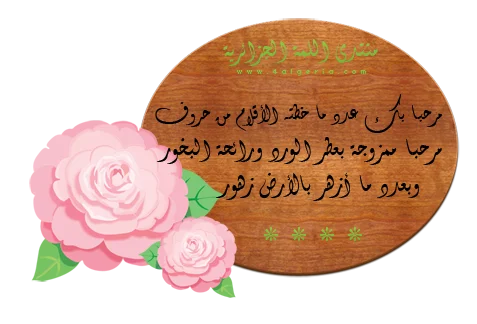 منتدى اللمة الجزائرية
www.4algeria.com
مرحبا بك عدد ما خطته الأقلام من حروف
مرحبا ممزوجة بعطر الورد ورائحة البخور
وبعدد ما أزهر بالأرض زهور